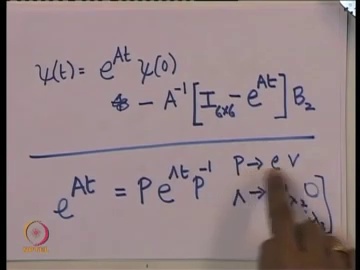 ψ(t) = e^{At} ψ(0)
- A^{-1} [I_{6x6} - e^{At}] B_2
e^{At} = P e^{Λt} P^{-1}
P → e v
Λ →